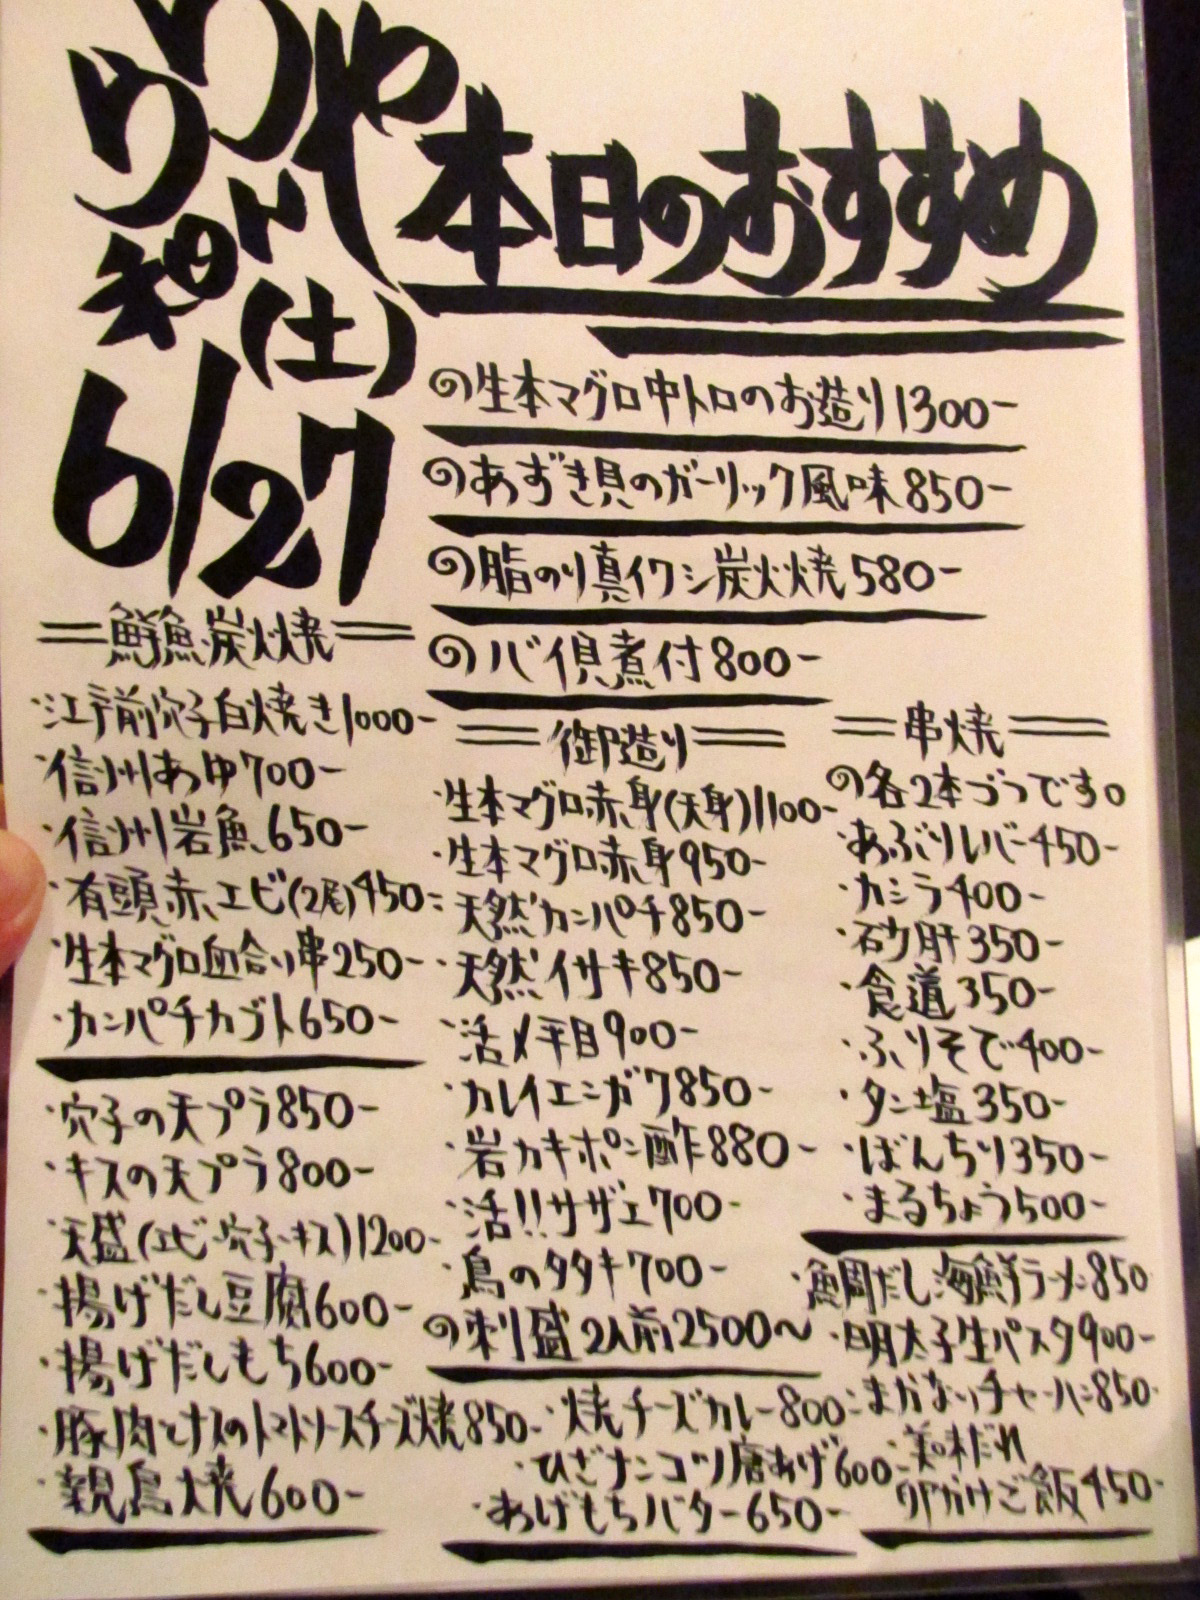 本日のおすすめ
(土)
6/27
の生本マグロ中トロのお造り1300-
のあずき貝のガーリック風味850-
の脂のり真イワシ炭火焼580-
のハバ煮付800-
=鮮魚炭火焼=
・江戸前穴子白焼き1000-
・信州あゆ700-
・信州岩魚650-
・有頭赤エビ(2尾)450-
・生本マグロ血合い串250-
・カンパチカブト650-
・穴子の天プラ850-
・キスの天プラ800-
・天盛(エビ・穴子・キス)1200-
・揚げだし豆腐600-
・揚げだしもち600-
・豚肉とナスのトマトソースチーズ焼850-
・親鳥焼600-
=御造り=
・生本マグロ赤身(天身)1100-
・生本マグロ赤身950-
・天然カンパチ850-
・天然イサキ850-
・活〆平目900-
・カレイエンガワ850-
・岩カキポン酢880-
・活!!サザエ700-
・鳥のタタキ700-
の刺盛2人前2500〜
・焼チーズカレー800-
・ひざナンコツ唐あげ600-
・あげもちバター650-
=串焼=
の各2本づつです。
・あぶりレバー450-
・カシラ400-
・砂肝350-
・食道350-
・ふりそで400-
・タン塩350-
・ぼんちり350-
・まるちょう500-
・魚鯛だし海鮮ラーメン850
・明太子生パスタ900-
・まかないチャーハン850-
・美味だれ
卵かけご飯450-